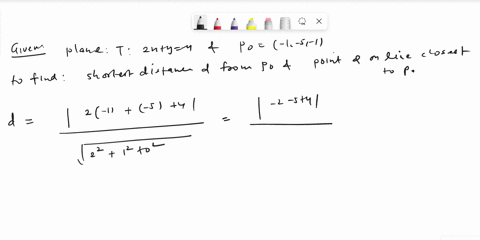 Given plane: T: 2x+y=4 & P0 = (-1,-5,-1)
to find: shortest distance d from P0 & point Q on line closest to P0
d = | 2(-1) + (-5) + 4 | / √(2² + 1² + 0²) = | -2 -5+4 |